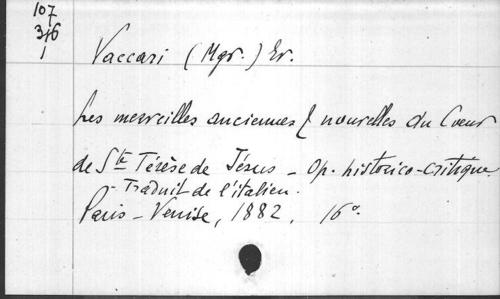 107
316
1
Vaccari (Mgr.) Er.
Les merveilles anciennes & nouvelles du Coeur
de Ste Térèse de Jésus - Op. historico-critique
- Traduit de l'italien.
Paris - Venise, 1882, 16°.